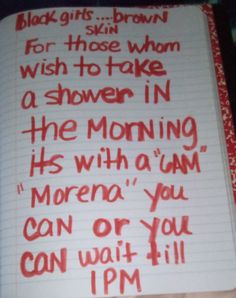 Black girls....brown
SKIN
For those whom
wish to take
a shower IN
the MorNiNg
its with a "6AM"
"Morena" you
CAN or you
CAN wait till
1PM